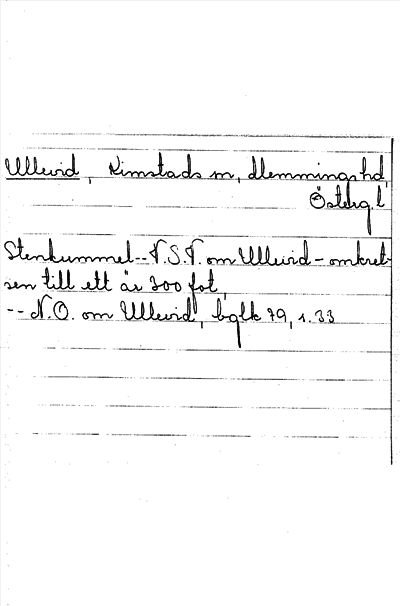 Ullevid, Kimstads sn, Memmings hd,
Östergl
Stenkummel -- V.S.V. om Ullevid - omkret-
sen till ett är 300 fot,
-- N.O. om Ullevid, bglk 79, s. 33